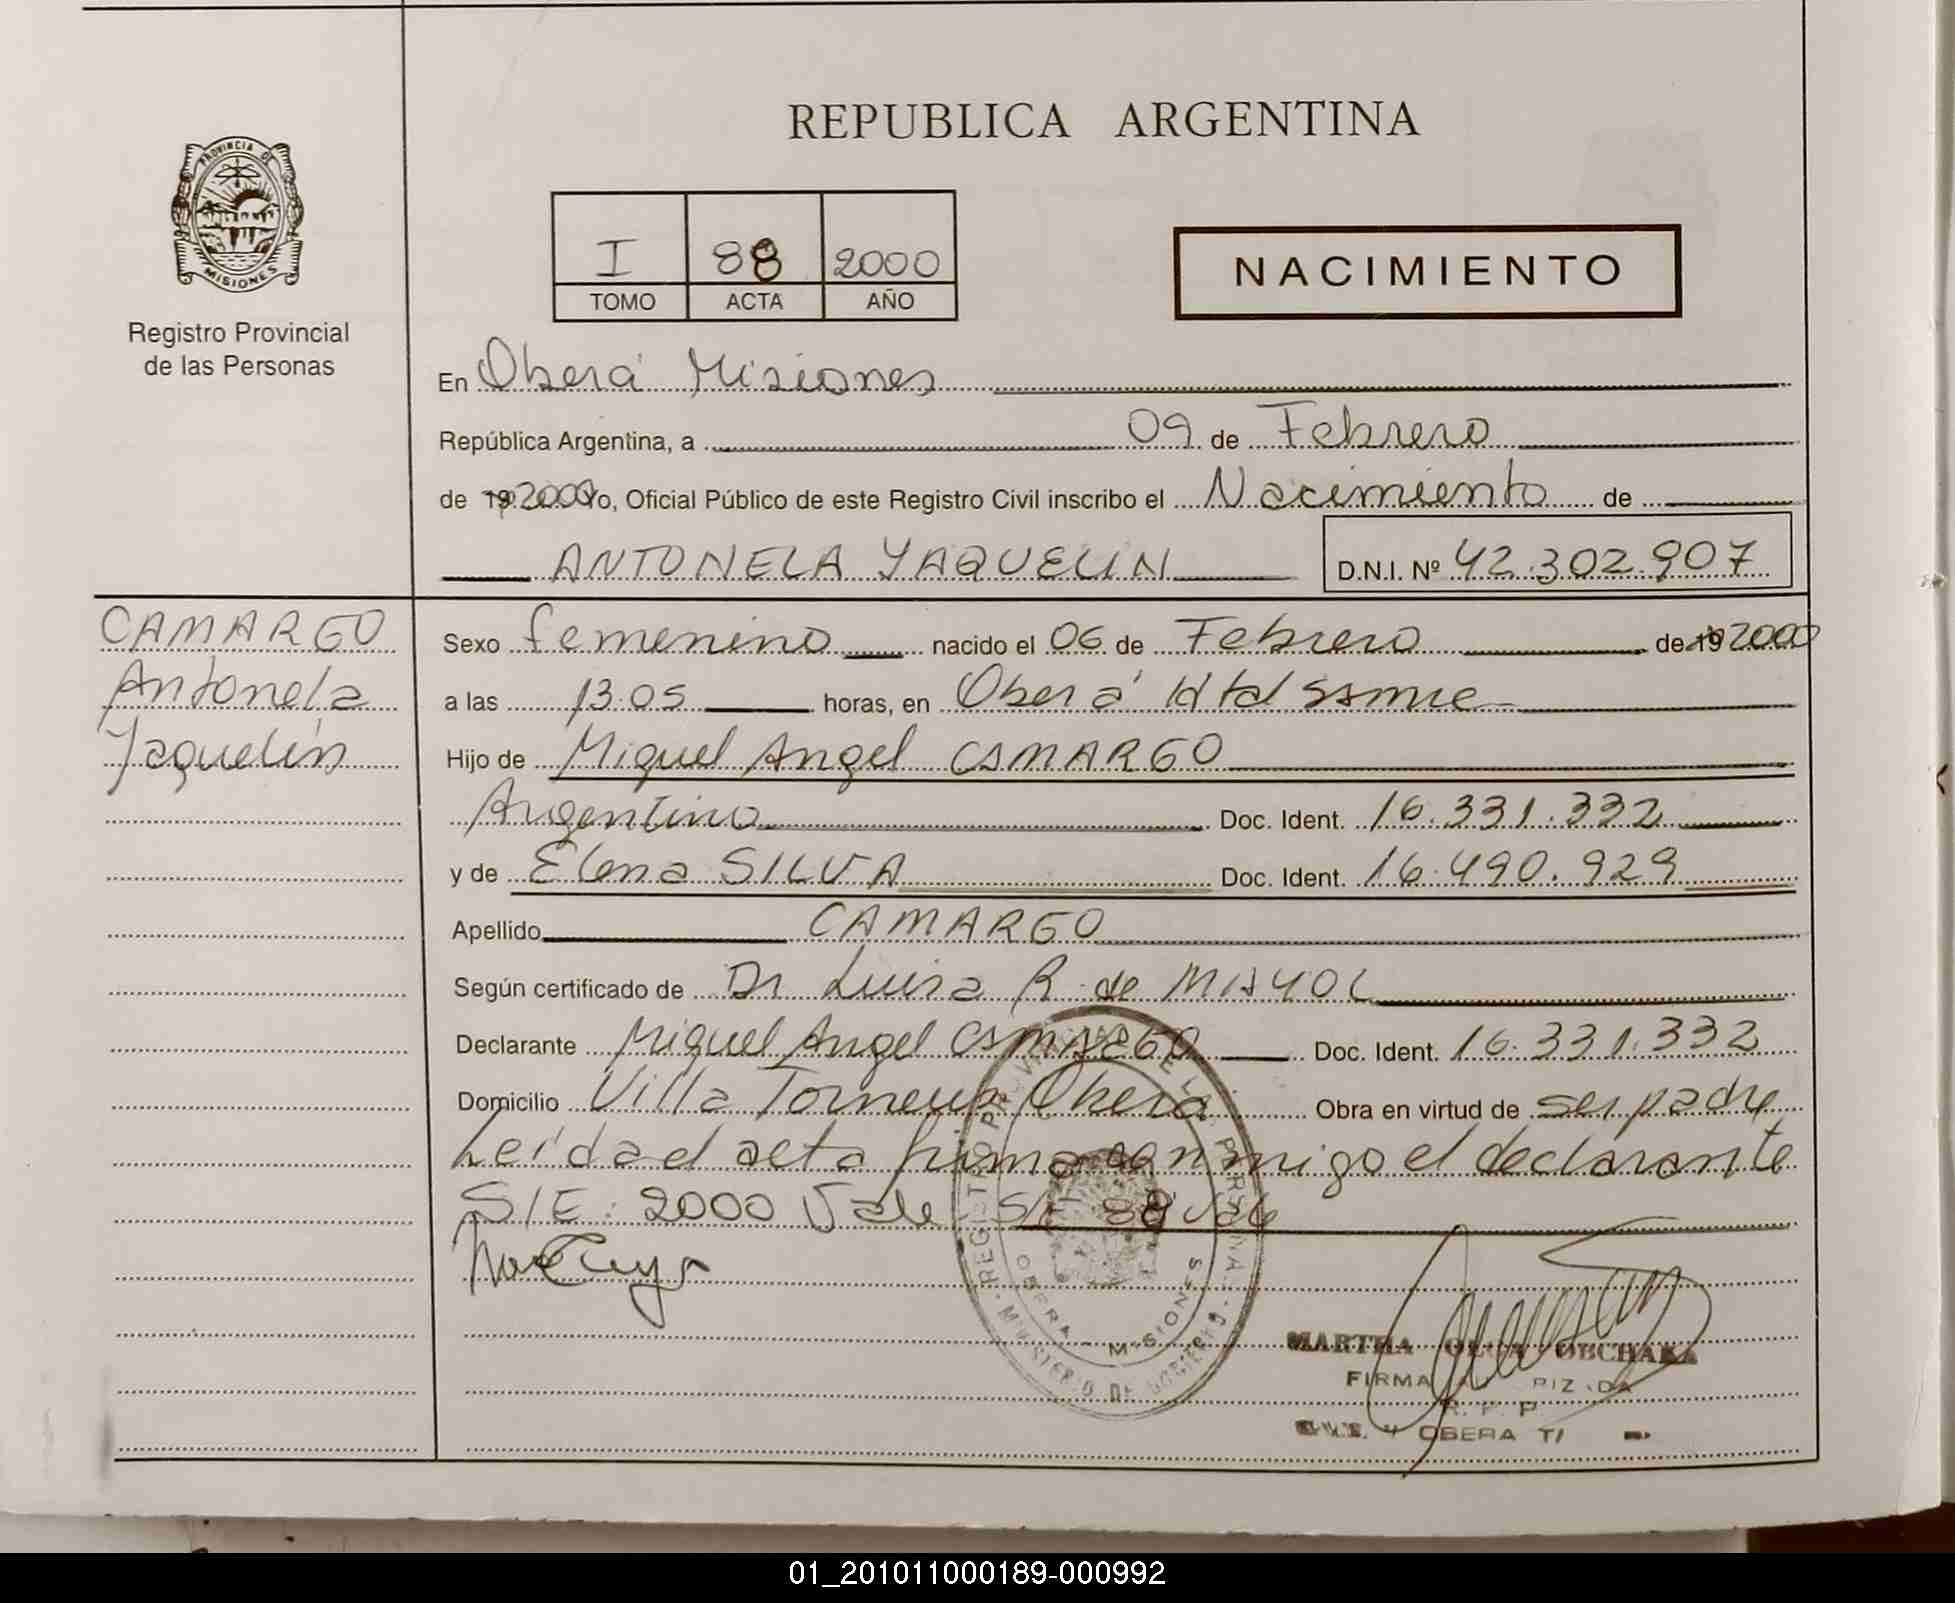 REPUBLICA ARGENTINA
PROVINCIA DE
MISIONES
Registro Provincial
de las Personas
I 88 2000
TOMO ACTA AÑO
NACIMIENTO
En Oberá Misiones
República Argentina, a 09 de Febrero
de 19 2000 Yo, Oficial Público de este Registro Civil inscribo el Nacimiento de
ANTONELA YAQUELIN D.N.I. Nº 42.302.907
CAMARGO
Antonela
Yaquelin
Sexo femenino nacido el 06 de Febrero de 19 2000
a las 13.05 horas, en Oberá
Hijo de Miguel Angel CAMARGO
Argentino Doc. Ident. 16.331.332
y de Elena SILVA Doc. Ident. 16.490.929
Apellido CAMARGO
Según certificado de Dr Luisa R. de MAYOL
Declarante Miguel Angel CAMARGO Doc. Ident. 16.331.332
Domicilio Villa Oberá Obra en virtud de ser padre
Leída el acta firma conmigo el declarante
S/E: 2000 Vale S/E 88 Vale
OBERA - MISIONES
MINISTERIO DE GOBIERNO
MARTHA OLGA OBCHAKA
FIRMA
R. P. P.
OBERA
01_201011000189-000992